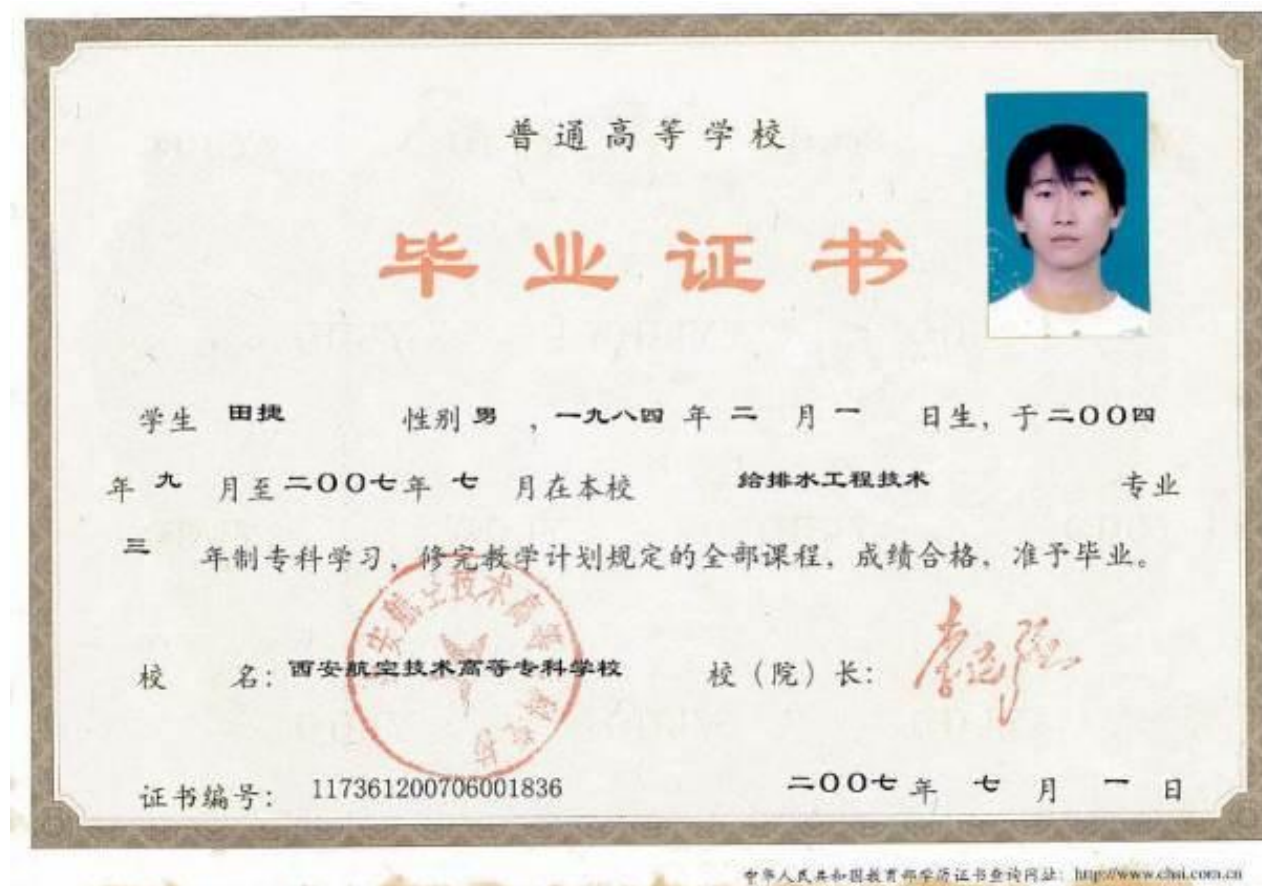 普通高等学校
毕业证书
学生 田捷 性别 男 ，一九八四 年 二 月 一 日生，于二〇〇四
年 九 月至二〇〇七年 七 月在本校 给排水工程技术 专业
三 年制专科学习，修完教学计划规定的全部课程，成绩合格，准予毕业。
校 名：西安航空技术高等专科学校 校（院）长：
证书编号： 117361200706001836 二〇〇七 年 七 月 一 日
中华人民共和国教育部学历证书查询网址：http://www.chsi.com.cn